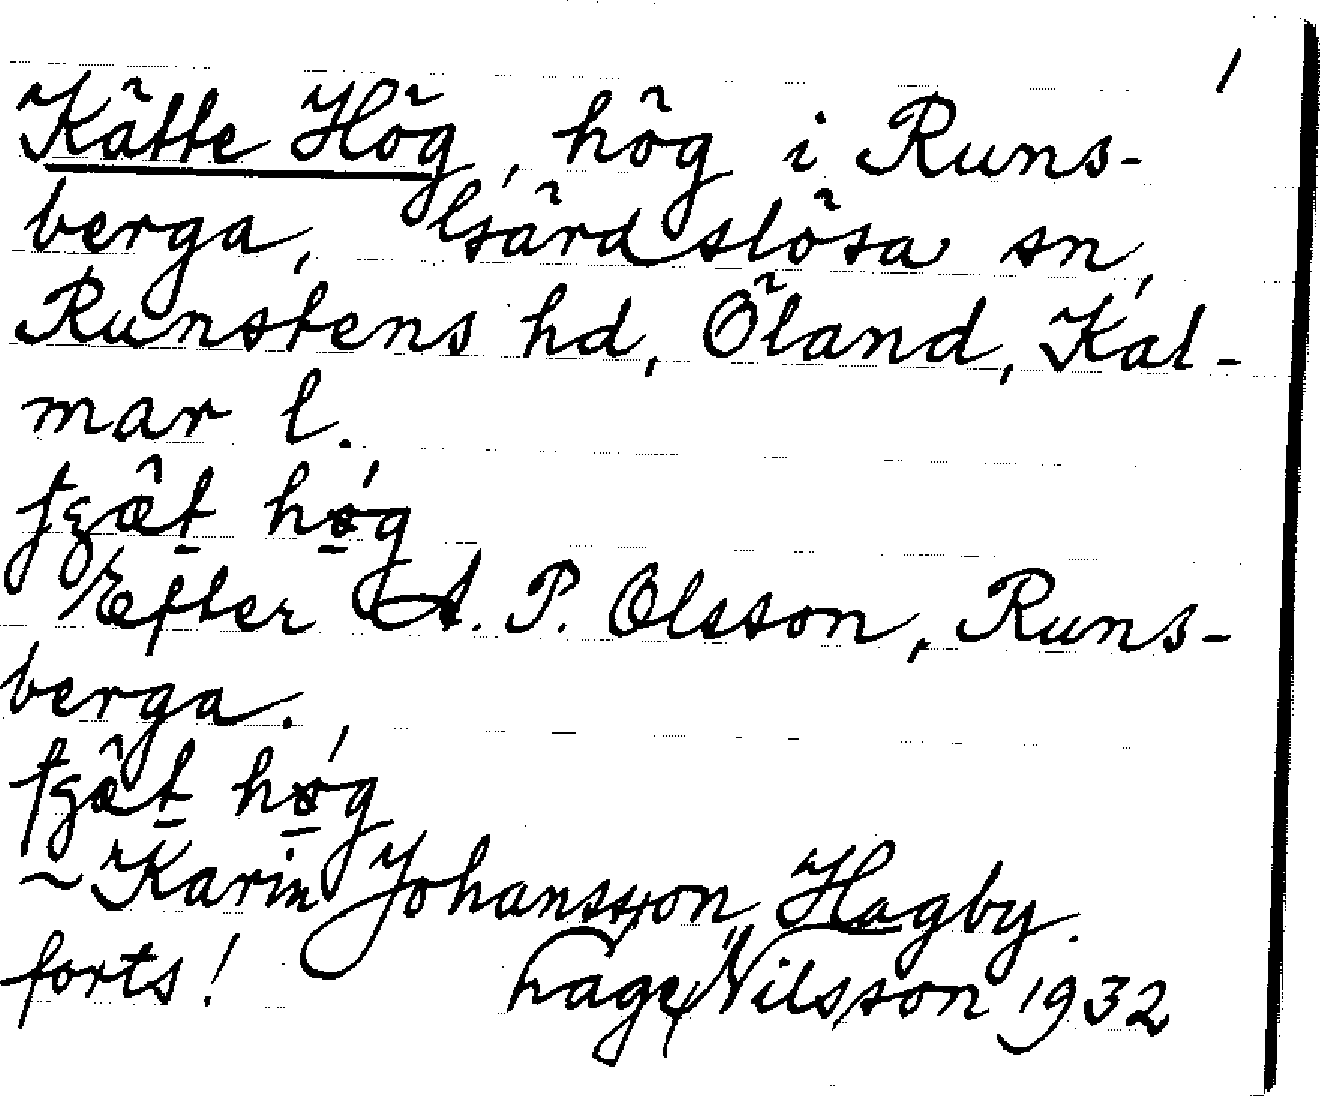 1
Kätte Hög, hög i Runs-
berga, Gärdslösa sn,
Runstens hd, Öland, Kal-
mar l.
hǿg
Efter A. P. Olsson, Runs-
berga.
hǿg
~ Karin Johansson, Hagby.
forts! Hage Nilsson 1932